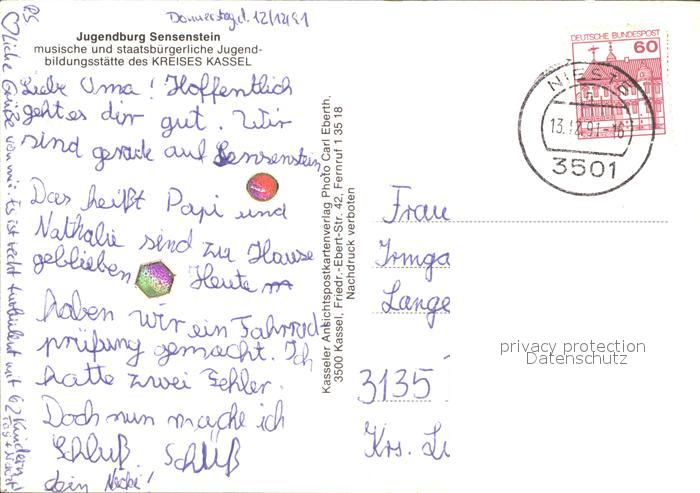 Donnerstag d. 12/12/91
Jugendburg Sensenstein
musische und staatsbürgerliche Jugend-
bildungsstätte des KREISES KASSEL
Liebe Oma! Hoffentlich
geht es dir gut. Wir
sind gerade auf Sensenstein
Das heißt Papi und
Nathalie sind zu Hause
geblieben Heute
haben wir ein Fahrrad-
prüfung gemacht. Ich
hatte zwei Fehler.
Doch nun mache ich
Schluß Schlüß
dein
PS
♡liche Grüße von mir. Es ist recht turbulent mit 62 Kindern
Tag + Nacht
Kasseler Ansichtspostkartenverlag Photo Carl Eberth,
3500 Kassel, Friedr.-Ebert-Str. 42, Fernruf 1 35 18
Nachdruck verboten
DEUTSCHE BUNDESPOST
60
NIESTE
13.12.91-16
3501
Frau
Irmga
Lange
3135
Krs. Lü
privacy protection
Datenschutz